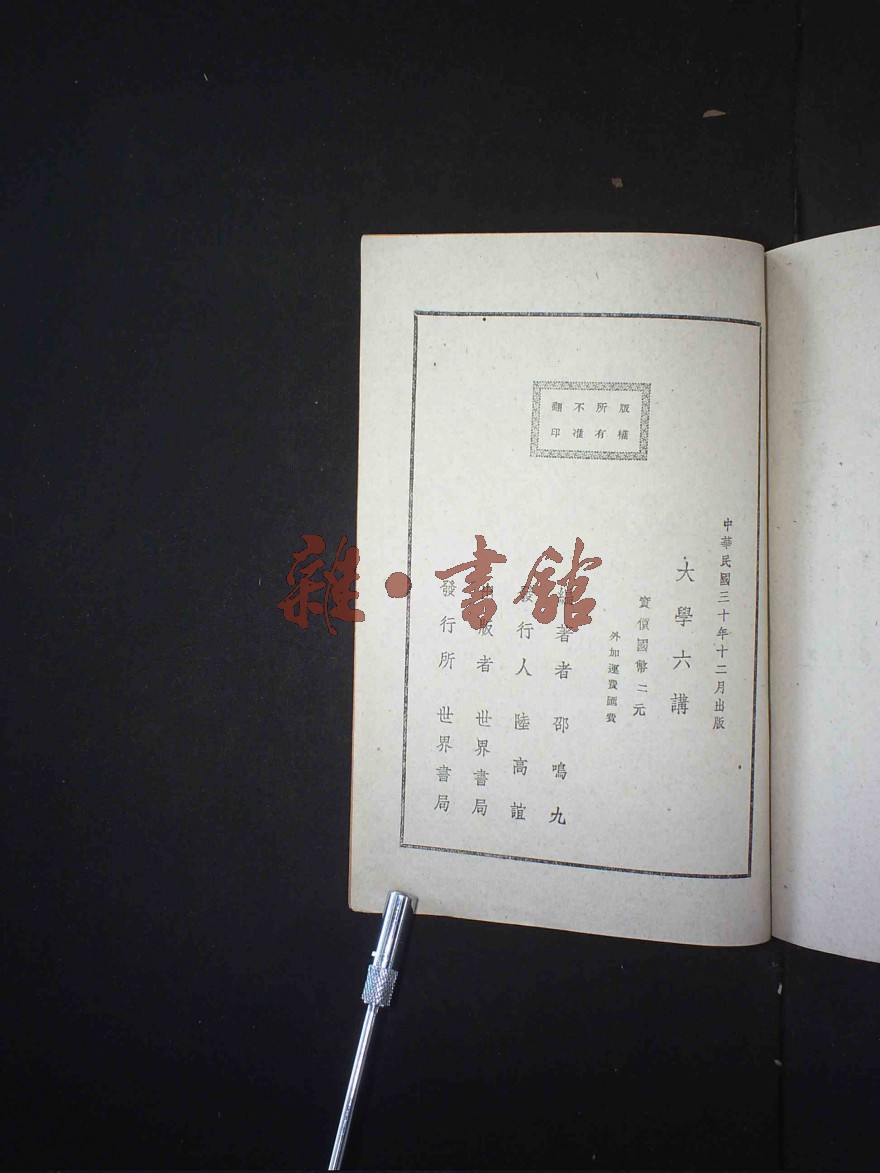 版權
所有
不准
翻印
中華民國三十年十二月出版
大學六講
實價國幣二元
外加運費匯費
編著者 邵鳴九
發行人 陸高誼
出版者 世界書局
發行所 世界書局
雜·書館